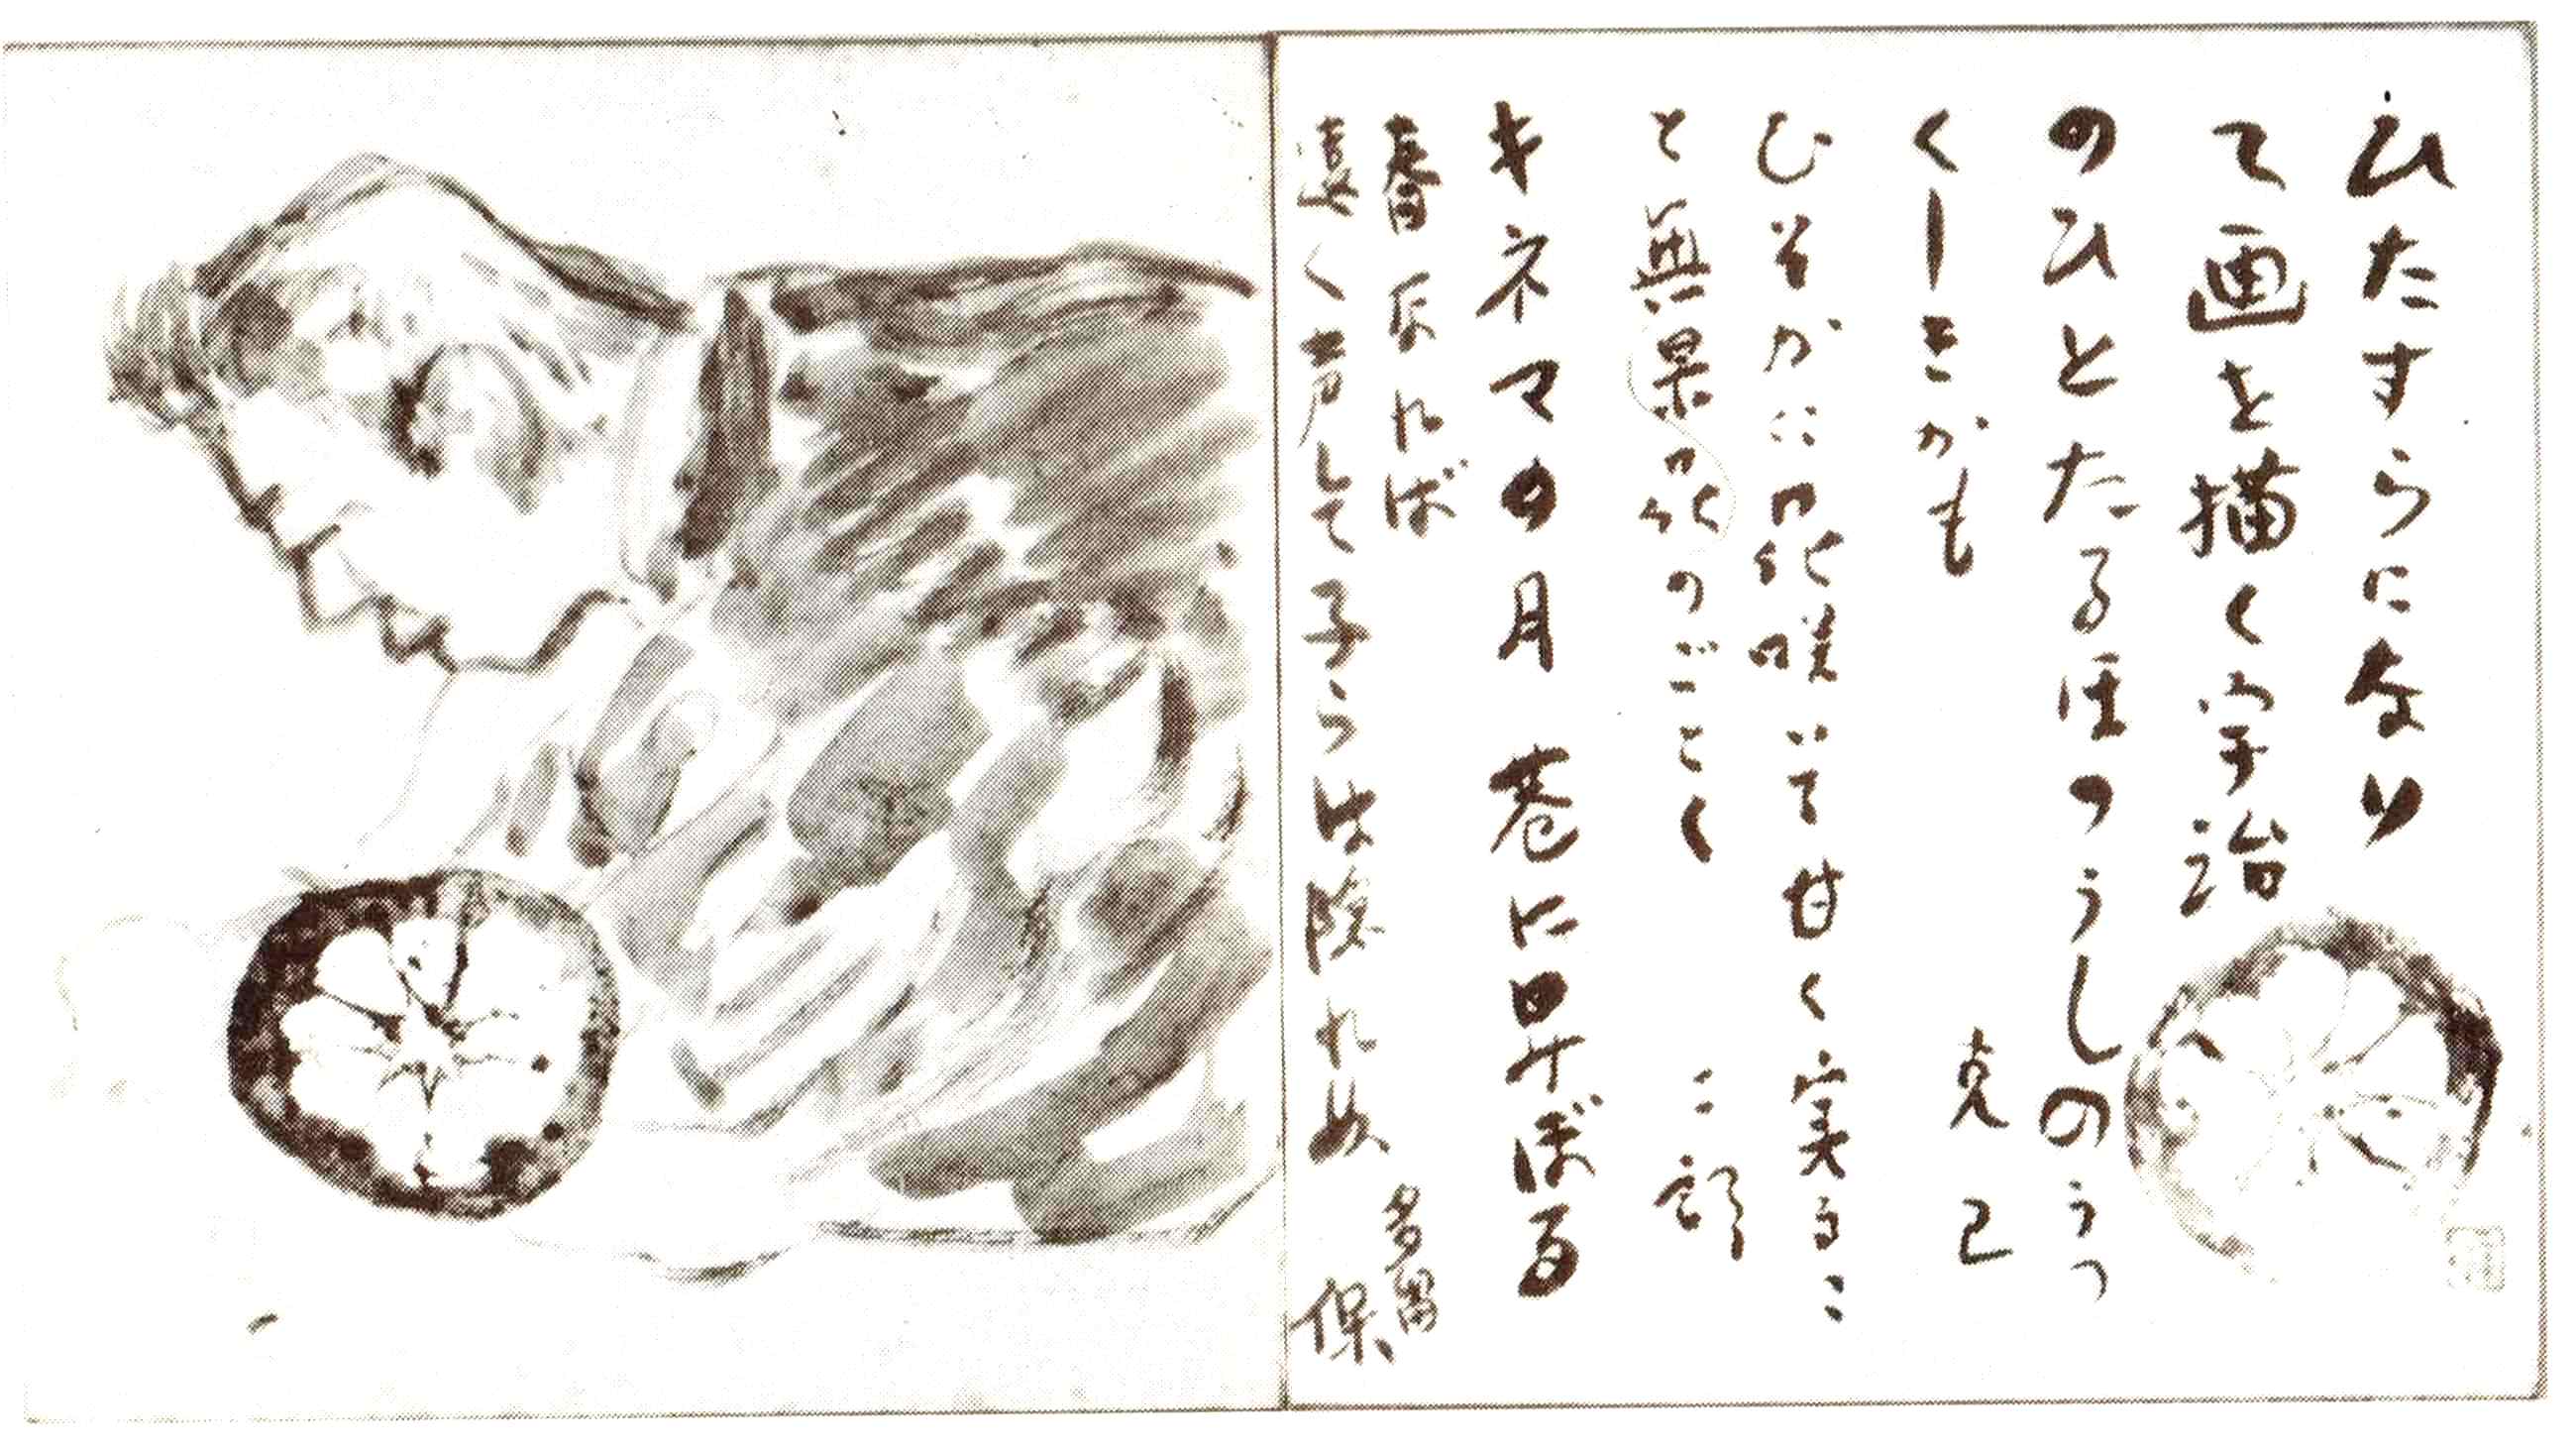 ひたすらになり
て画を描く宇治
のひとたるほつうしのうつ
くしきかも
克己
ひそかに花咲いて甘く実るこ
と無果花のごとく
キネマの月 巷に昇ぼる
春来れば
遠く声して子らは隠れぬ
保